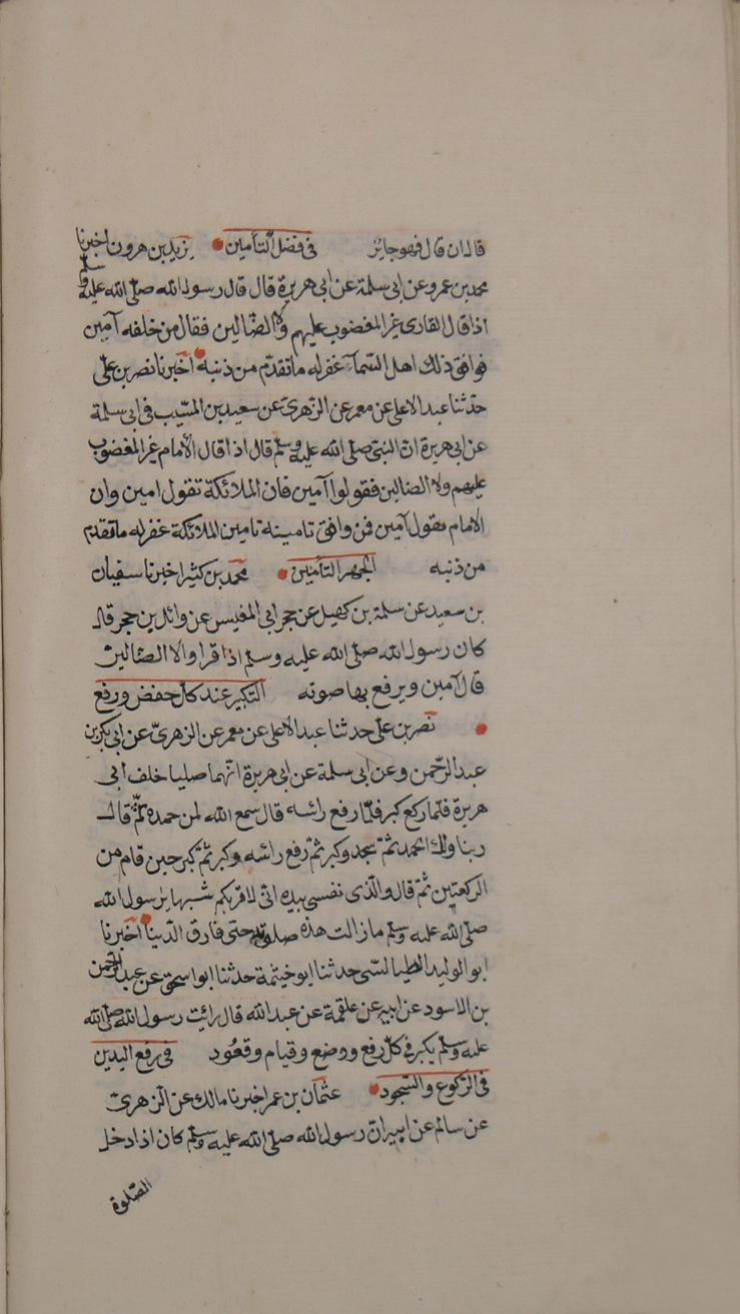 قال ان قال فهو جائز في فضل التأمين يزيد بن هرون اخبرنا
محمد بن عمرو عن ابي سلمة عن ابي هريرة قال قال رسول الله صلى الله عليه وسلم
اذا قال القارى غير المغضوب عليهم ولا الضالين فقال من خلفه آمين
فوافق ذلك اهل السماء غفر له ما تقدم من ذنبه اخبرنا نصر بن علي
حدثنا عبد الاعلى عن معمر عن الزهري عن سعيد بن المسيب في ابي سلمة
عن ابي هريرة ان النبي صلى الله عليه وسلم قال اذا قال الامام غير المغضوب
عليهم ولا الضالين فقولوا آمين فان الملائكة تقول امين وان
الامام يقول آمين فمن وافق تامينه تامين الملائكة غفر له ما تقدم
من ذنبه الجهر التأمين محمد بن كثير اخبرنا سفيان
بن سعيد عن سلمة بن كهيل عن حجر ابي المغيس عن وائل بن حجر قال
كان رسول الله صلى الله عليه وسلم اذا قرا ولا الضالين
قال آمين ويرفع بها صوته التكبير عند كل خفض ورفع
نصر بن علي حدثنا عبد الاعلى عن معمر عن الزهري عن ابي بكر بن
عبد الرحمن وعن ابي سلمة عن ابي هريرة انهما صليا خلف ابي
هريرة فلما ركع كبر فلما رفع رائسه قال سمع الله لمن حمده ثم قال
ربنا ولك الحمد ثم سجد وكبر ثم رفع رائسه وكبر ثم كبر حين قام من
الركعتين ثم قال والذي نفسي بيده اني لاقربكم شبها برسول الله
صلى الله عليه وسلم ما زالت هذه صلوته حتى فارق الدينا اخبرنا
ابو الوليد الطيالسي حدثنا ابو خيثمة حدثنا ابو اسحق عن عبد الرحمن
بن الاسود عن ابيه عن علقمة عن عبد الله قال رائيت رسول الله صلى الله
عليه وسلم يكبر في كل رفع ووضع وقيام وقعود في رفع اليدين
في الركوع والسجود عثمان بن عمر اخبرنا مالك عن الزهري
عن سالم عن ابيه ان رسول الله صلى الله عليه وسلم كان اذا دخل
الصلوة